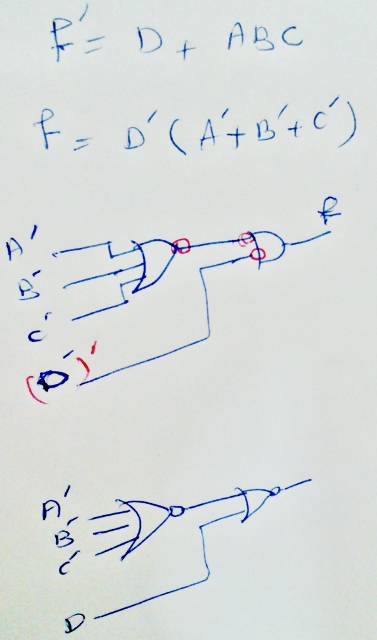 F' = D + ABC
F = D' (A' + B' + C')
F
A'
B'
C'
(D')'
A'
B'
C'
D